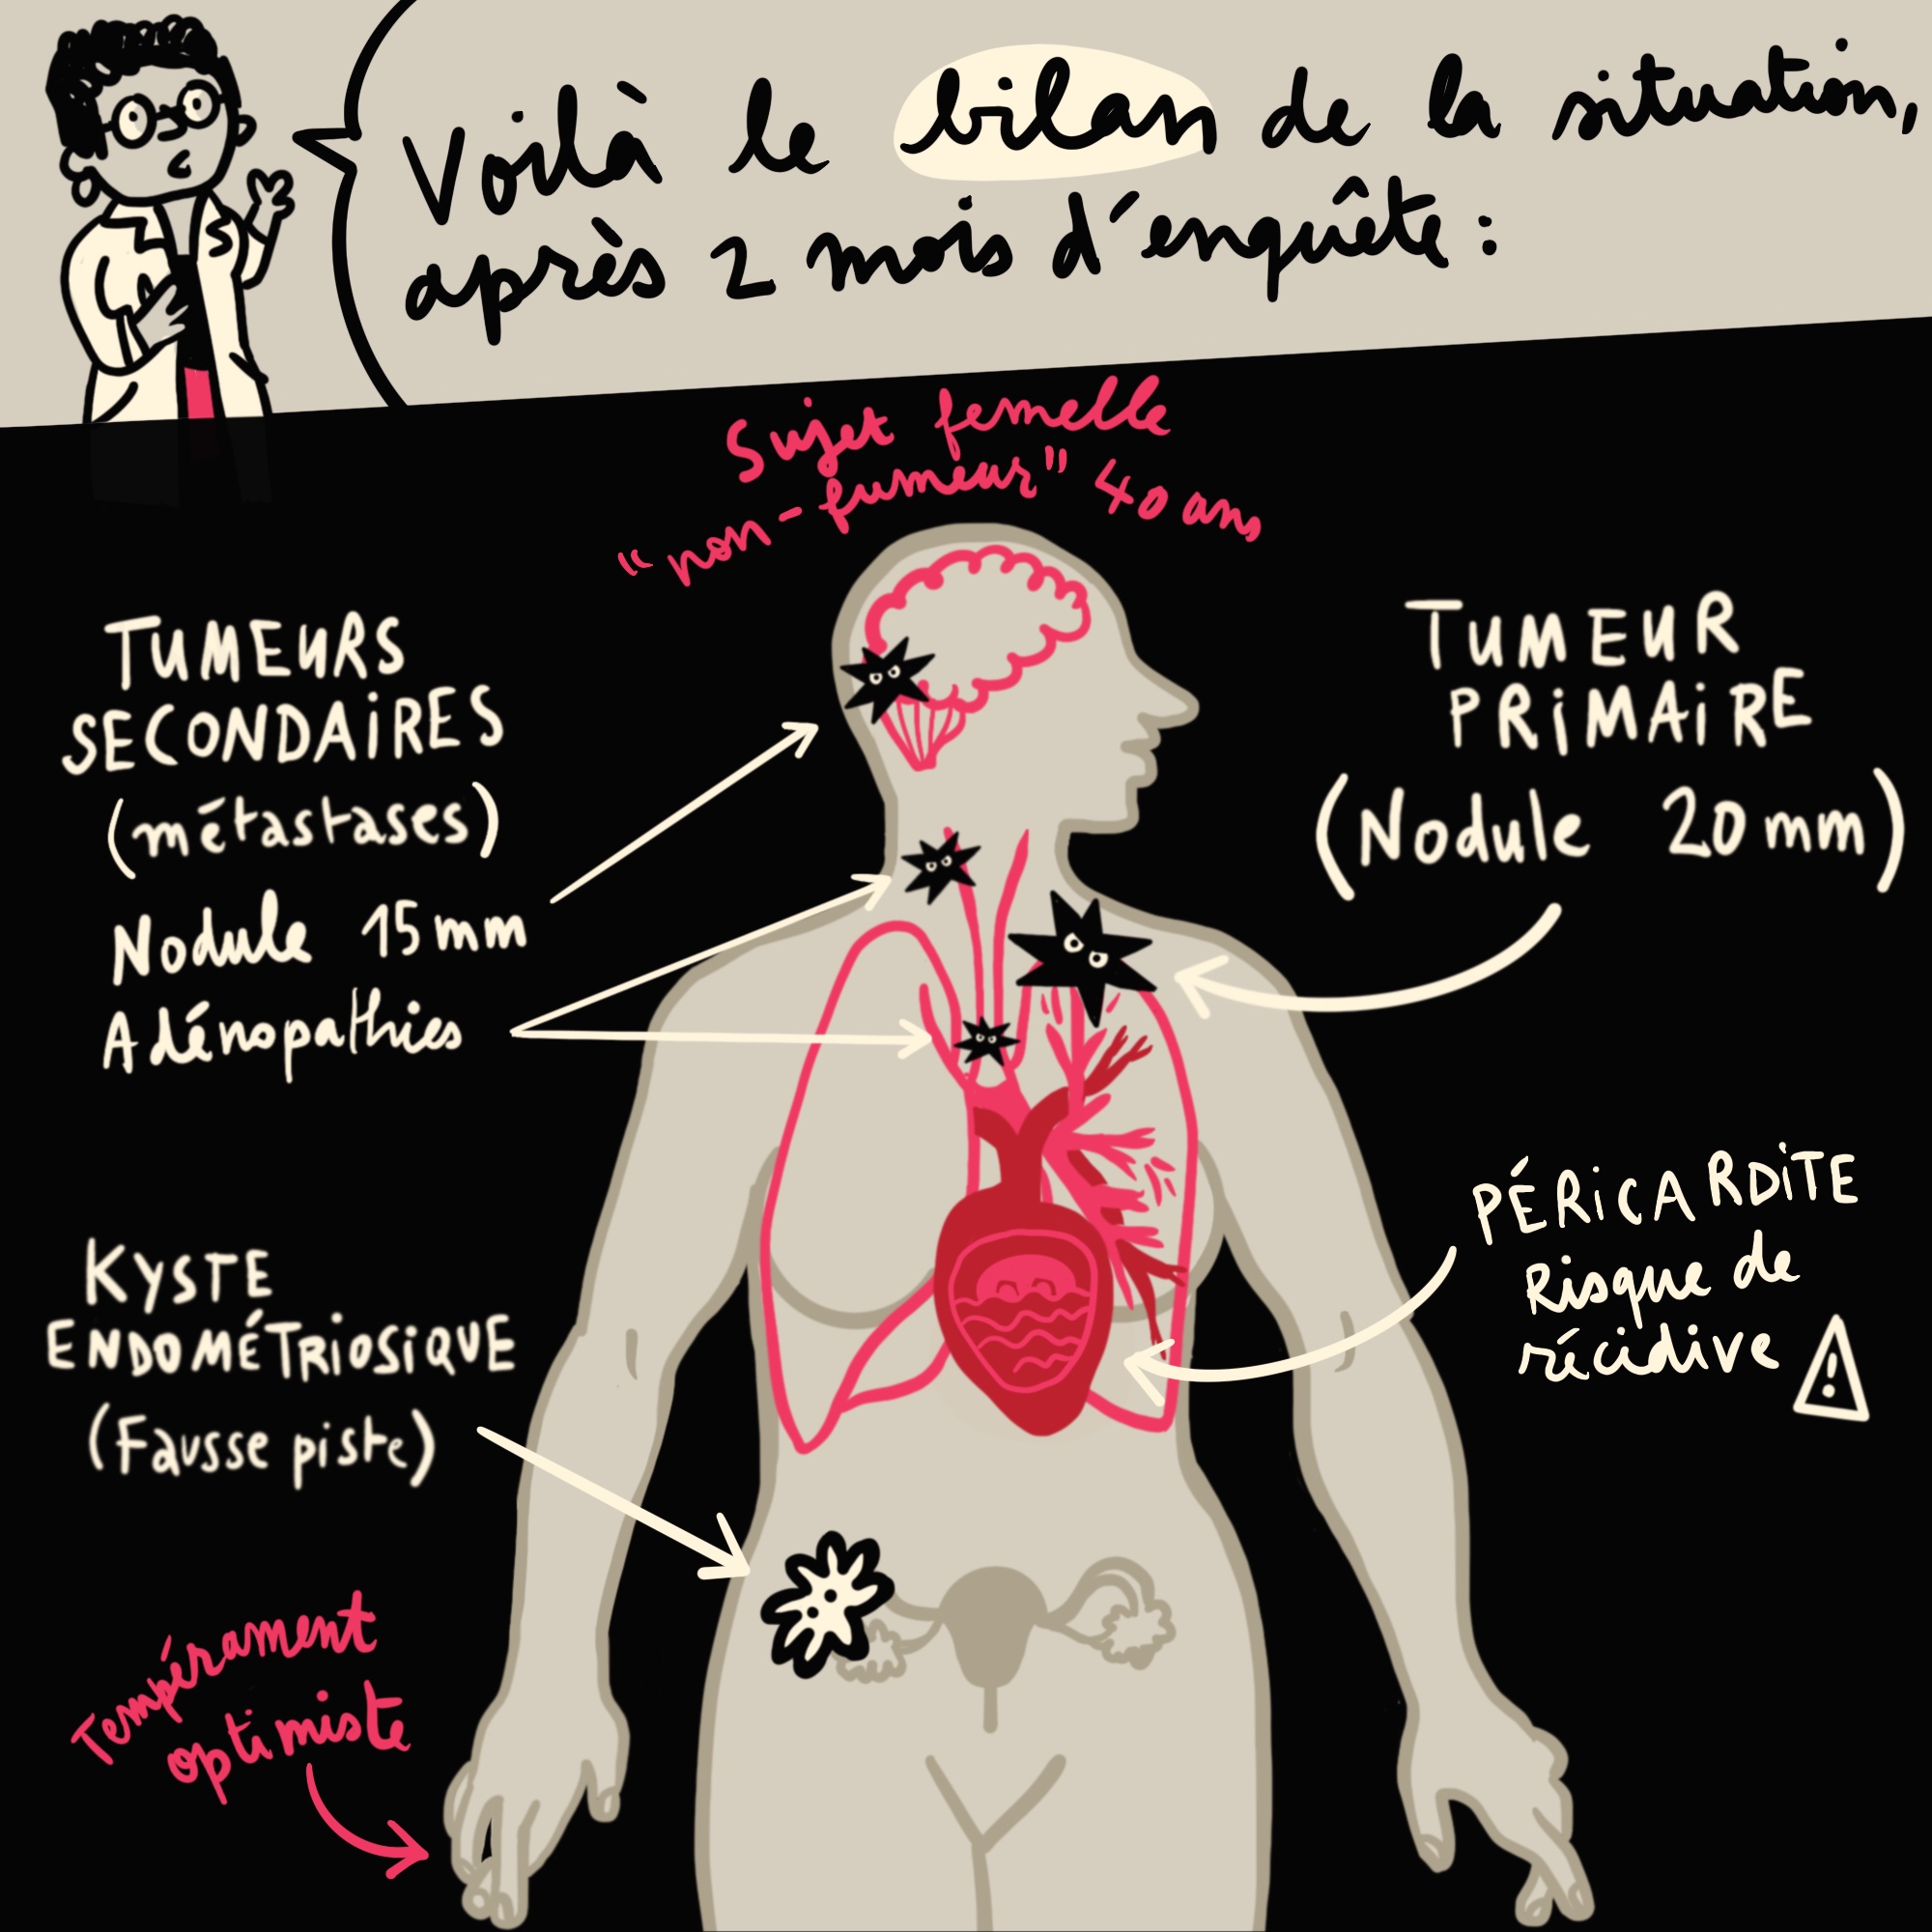 Voilà le bilan de la situation,
après 2 mois d'enquête :
Sujet femelle
"non-fumeur" 40 ans
TUMEURS
SECONDAIRES
(métastases)
Nodule 15 mm
Adénopathies
TUMEUR
PRIMAIRE
(Nodule 20 mm)
PÉRICARDITE
Risque de
récidive
!
KYSTE
ENDOMÉTRIOSIQUE
(Fausse piste)
Tempérament
optimiste